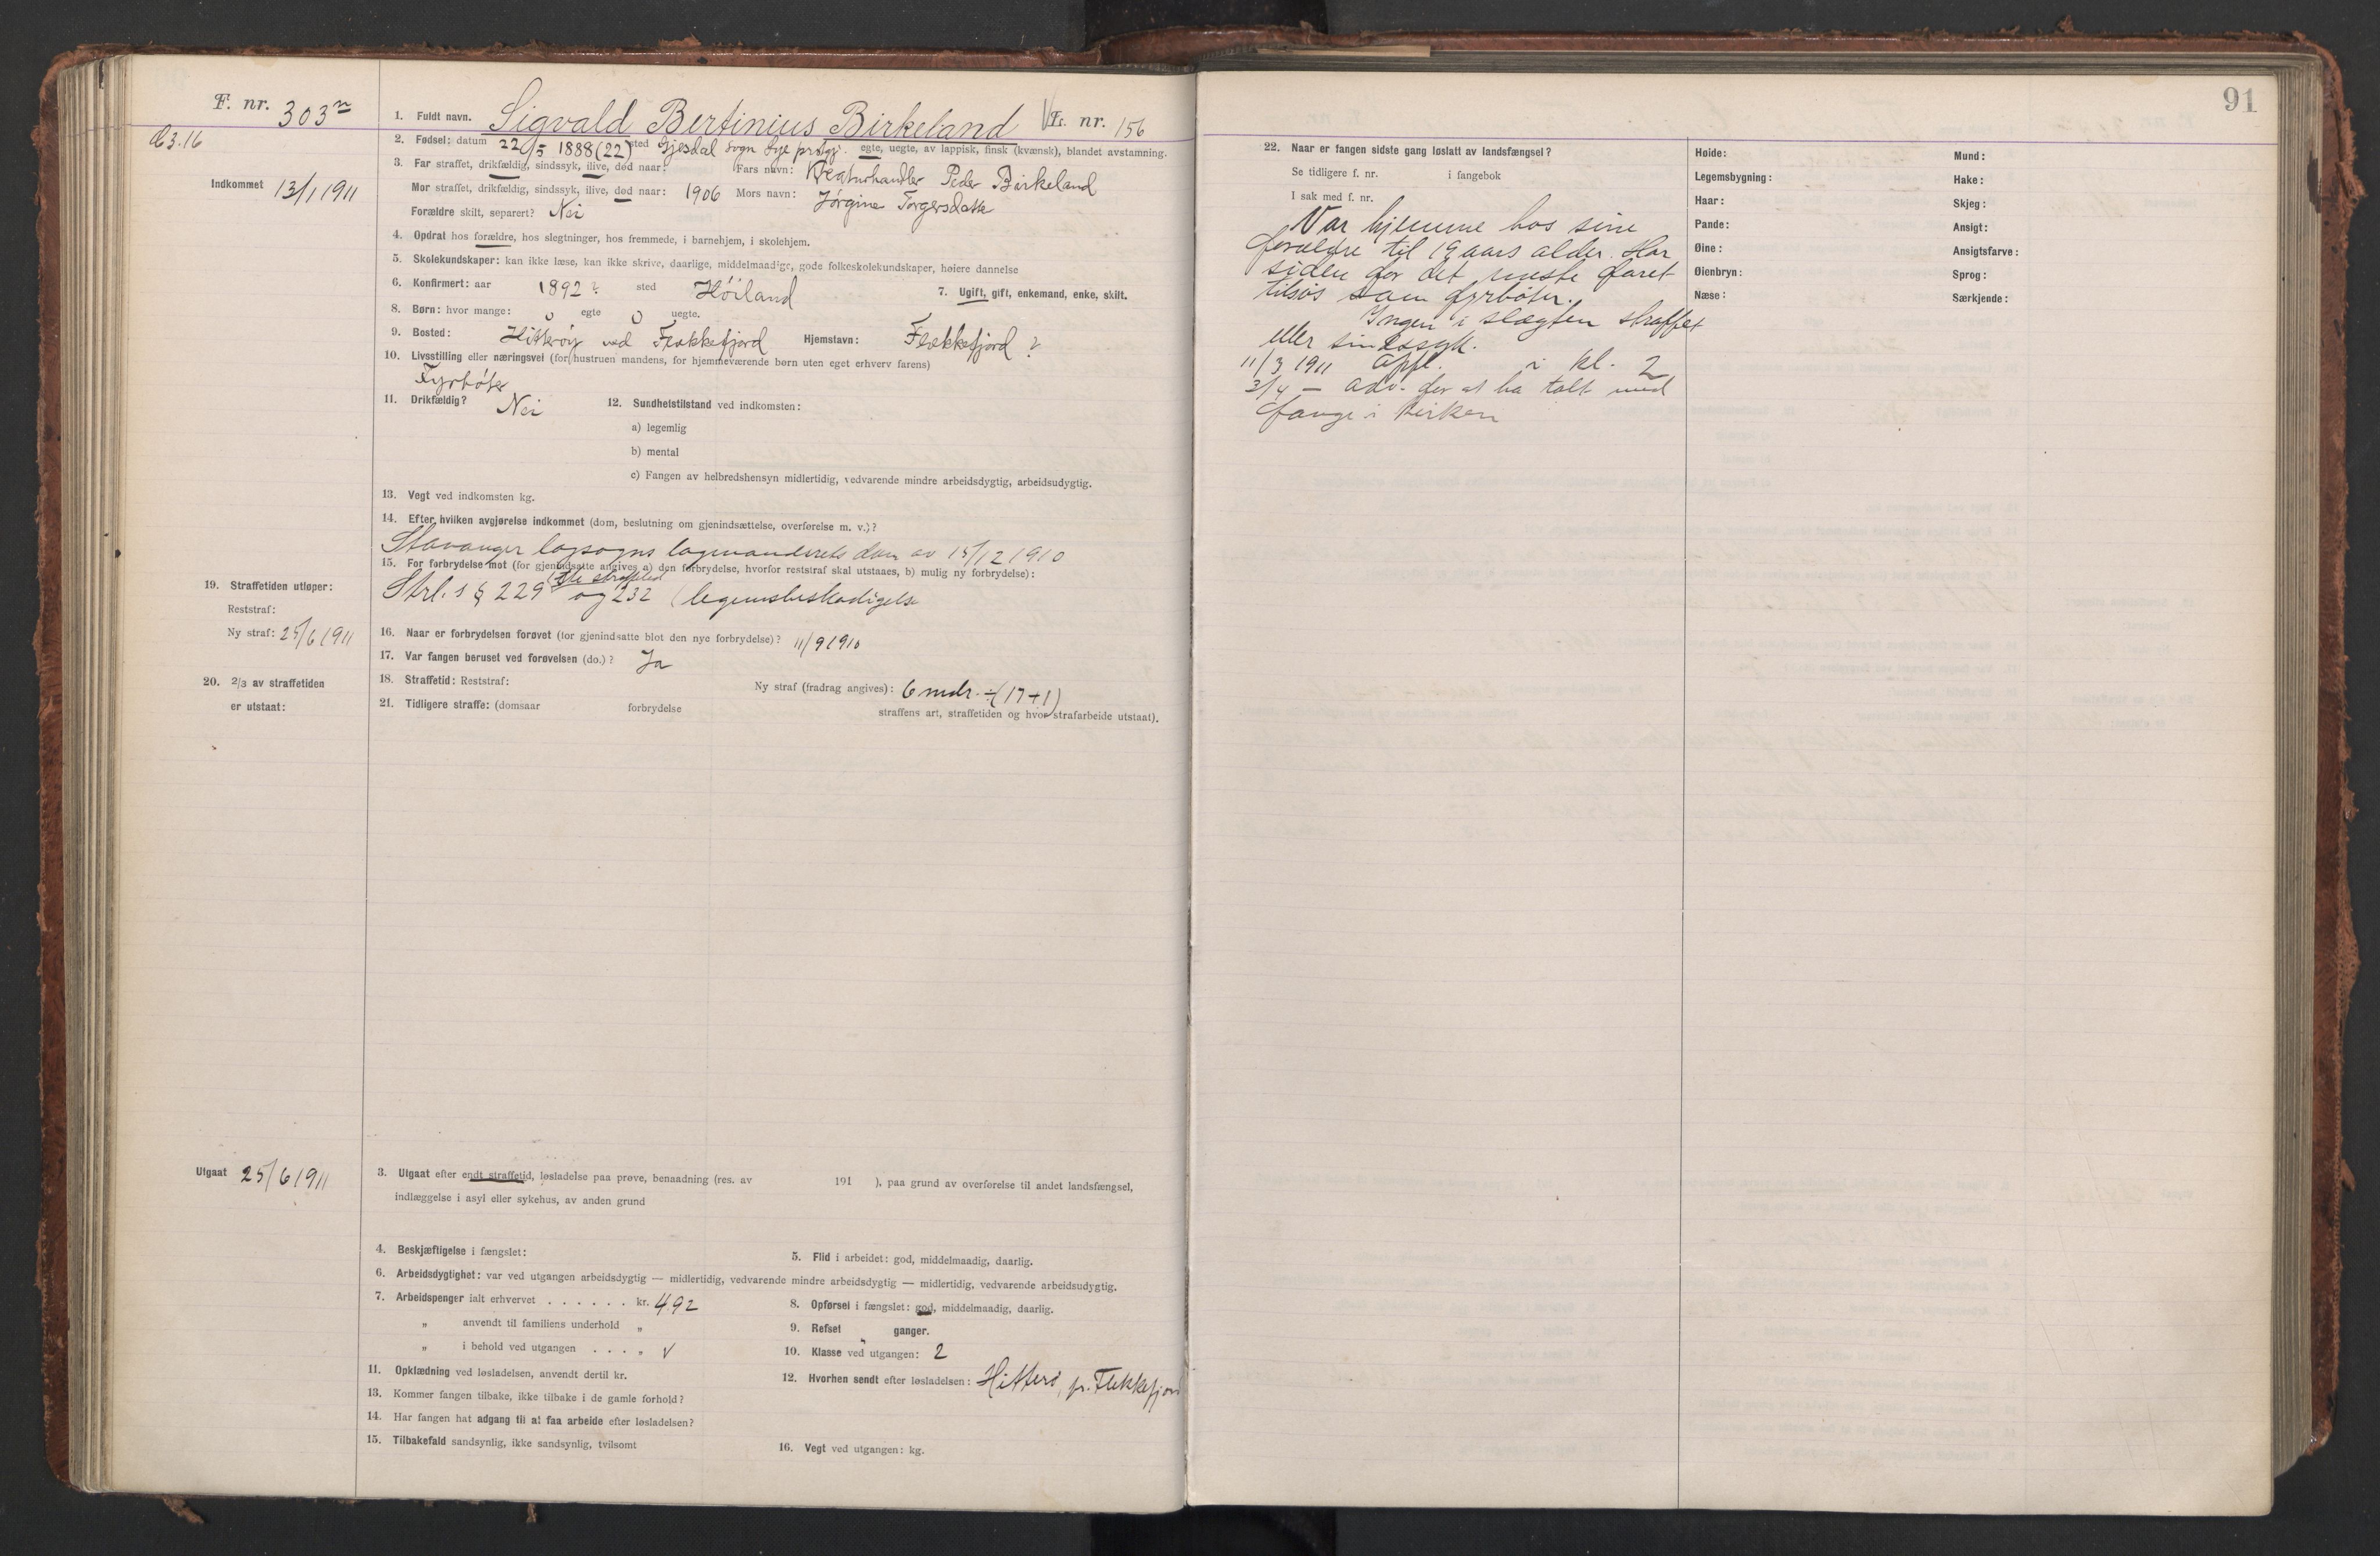 F. nr. 303
1. Fuldt navn. Sigvald Bertinius Birkeland L. nr. 156
2. Fødsel: datum 22/5 1888 (22) sted Gjesdal sogn Lye prgj. egte, uegte, av lappisk, finsk (kvænsk), blandet avstamning.
Indkommet 13/1 1911
3. Far straffet, drikfældig, sindssyk, ilive, død naar: Fars navn: Kreaturhandler Peder Birkeland
Mor straffet, drikfældig, sindssyk, ilive, død naar: 1906 Mors navn: Jørgine Torgersdatter
Forældre skilt, separert? Nei
4. Opdrat hos forældre, hos slegtninger, hos fremmede, i barnehjem, i skolehjem.
5. Skolekundskaper: kan ikke læse, kan ikke skrive, daarlige, middelmaadige, gode folkeskolekundskaper, høiere dannelse
6. Konfirmert: aar 1892? sted Høiland 7. Ugift, gift, enkemand, enke, skilt.
8. Børn: hvor mange: 0 egte 0 uegte.
9. Bosted: Hitterøy ved Flekkefjord Hjemstavn: Flekkefjord ?
10. Livsstilling eller næringsvei (for hustruen mandens, for hjemmeværende børn uten eget erhverv farens)
Fyrbøter
11. Drikfældig? Nei 12. Sundhetstilstand ved indkomsten:
a) legemlig
b) mental
c) Fangen av helbredshensyn midlertidig, vedvarende mindre arbeidsdygtig, arbeidsudygtig.
13. Vegt ved indkomsten kg.
14. Efter hvilken avgjørelse indkommet (dom, beslutning om gjenindsættelse, overførelse m. v.)?
Stavanger lagsogns lagmandsrets dom av 15/12 1910
15. For forbrydelse mot (for gjenindsatte angives a) den forbrydelse, hvorfor reststraf skal utstaaes, b) mulig ny forbrydelse):
Strl. s § 229 og 232 (legemsbeskadigelse
19. Straffetiden utløper:
Reststraf:
Ny straf: 25/6 1911
16. Naar er forbrydelsen forøvet (for gjenindsatte blot den nye forbrydelse)? 11/9 1910
17. Var fangen beruset ved forøvelsen (do.)? Ja
20. 2/3 av straffetiden
er utstaat:
18. Straffetid: Reststraf: Ny straf (fradrag angives): 6 mdr. ÷ (17+1)
21. Tidligere straffe: (domsaar forbrydelse straffens art, straffetiden og hvor strafarbeide utstaat).
Utgaat 25/6 1911
3. Utgaat efter endt straffetid, løsladelse paa prøve, benaadning (res. av 191 ), paa grund av overførelse til andet landsfængsel,
indlæggelse i asyl eller sykehus, av anden grund
4. Beskjæftigelse i fængslet: 5. Flid i arbeidet: god, middelmaadig, daarlig.
6. Arbeidsdygtighet: var ved utgangen arbeidsdygtig — midlertidig, vedvarende mindre arbeidsdygtig — midlertidig, vedvarende arbeidsudygtig.
7. Arbeidspenger ialt erhvervet . . . . . . kr. 4.92 8. Opførsel i fængslet: god, middelmaadig, daarlig.
„ anvendt til familiens underhold „ 9. Refset „ ganger.
„ i behold ved utgangen . . . „ 10. Klasse ved utgangen: 2
11. Opklædning ved løsladelsen, anvendt dertil kr. 12. Hvorhen sendt efter løsladelsen: Hitterø, pr. Flekkefjord
13. Kommer fangen tilbake, ikke tilbake i de gamle forhold?
14. Har fangen hat adgang til at faa arbeide efter løsladelsen?
15. Tilbakefald sandsynlig, ikke sandsynlig, tvilsomt 16. Vegt ved utgangen: kg.
91
22. Naar er fangen sidste gang løslatt av landsfængsel?
Se tidligere f. nr. i fangebok
I sak med f. nr.
Var hjemme hos sine
forældre til 19 aars alder. Har
siden for det meste faret
tilsøs som fyrbøter.
Ingen i slægten straffet
eller sindssyk.
11/3 1911 Oppl. i kl. 2
3/4 — adv. for at ha talt med
fange i kirken
Høide:
Legemsbygning:
Haar:
Pande:
Øine:
Øienbryn:
Næse:
Mund:
Hake:
Skjeg:
Ansigt:
Ansigtsfarve:
Sprog:
Særkjende: